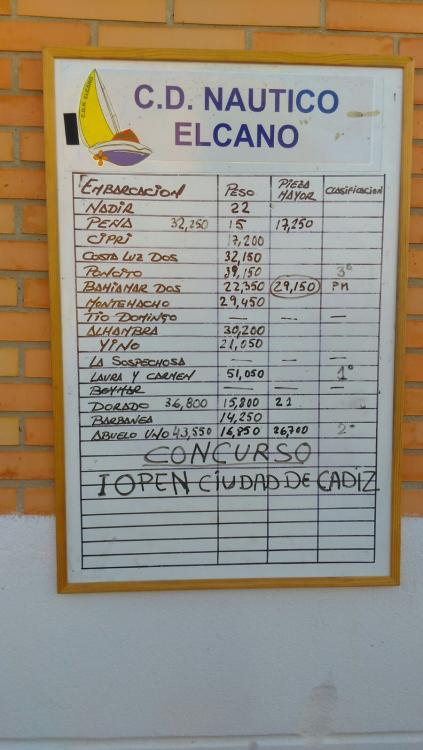 C.D. NAUTICO
ELCANO
EMBARCACION PESO PIEZA MAYOR CLASIFICACION
NADIR 22
PEÑA 32,250 15 17,250
CIPRI 7,200
COSTA LUZ DOS 32,150
PONCITO 39,150 3º
BAHIAMAR DOS 22,350 29,150 PM
MONTEHACHO 29,450
TIO DOMINGO — — —
ALHAMBRA 30,200
YPNO 21,050
LA SOSPECHOSA — — —
LAURA Y CARMEN 51,050 1º
BEYMAR — — —
DORADO 36,800 15,800 21
BARBANEA 14,250
ABUELO UNO 43,550 16,850 26,700 2º
CONCURSO
I OPEN CIUDAD DE CADIZ